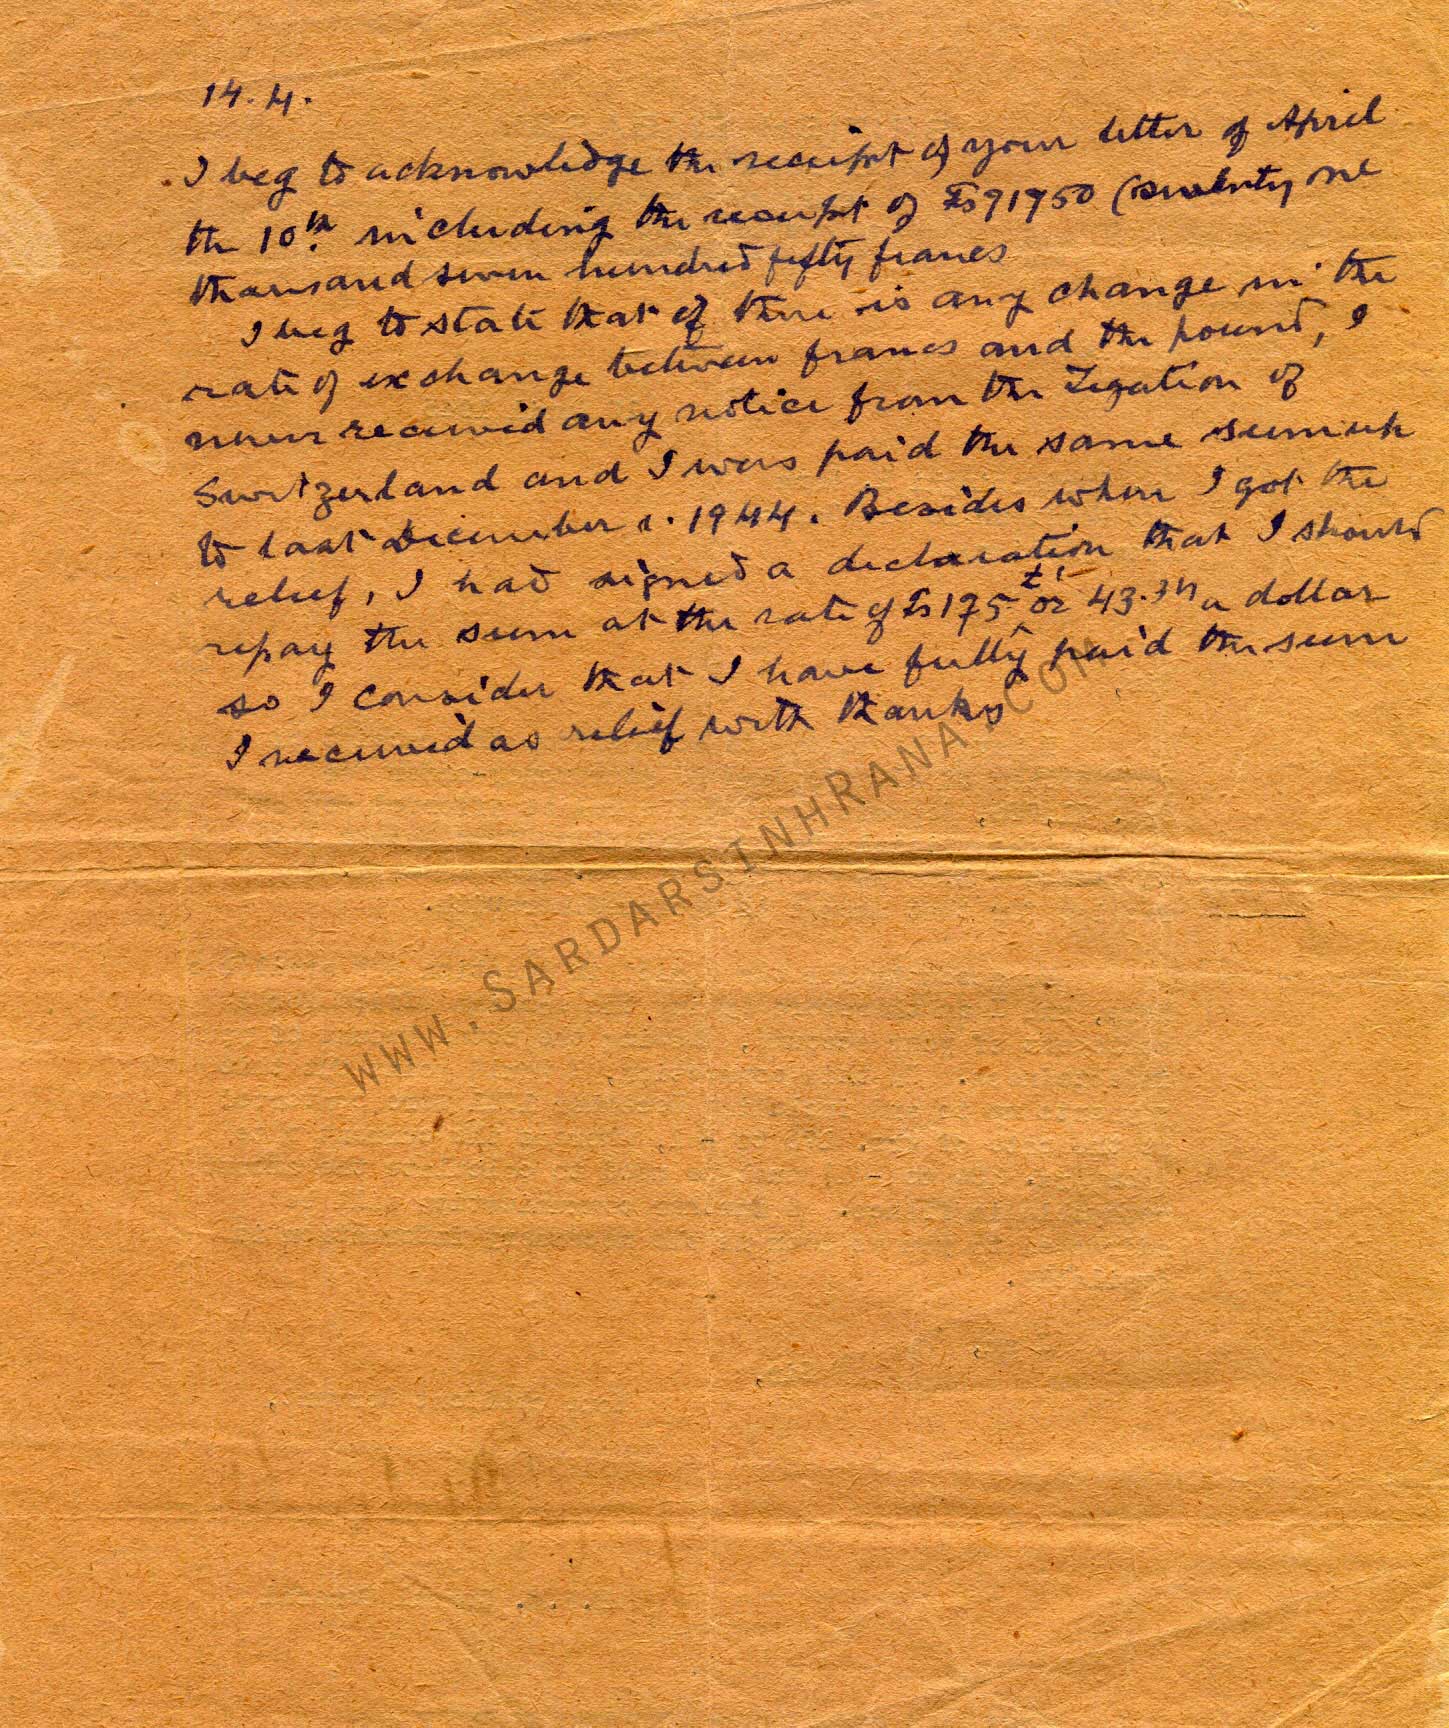 14.4.
I beg to acknowledge the receipt of your letter of April
the 10th including the receipt of Fs 71750 (seventy one
thousand seven hundred fifty francs
I beg to state that if there is any change in the
rate of exchange between francs and the pound, I
never received any notice from the Legation of
Switzerland and I was paid the same sum up
to last December 1944. Besides when I got the
relief, I had signed a declaration that I should
repay the sum at the rate of Fs 175 or 43. a dollar
so I consider that I have fully paid the sum
I received as relief with thanks
WWW.SARDARSINHRANA.COM